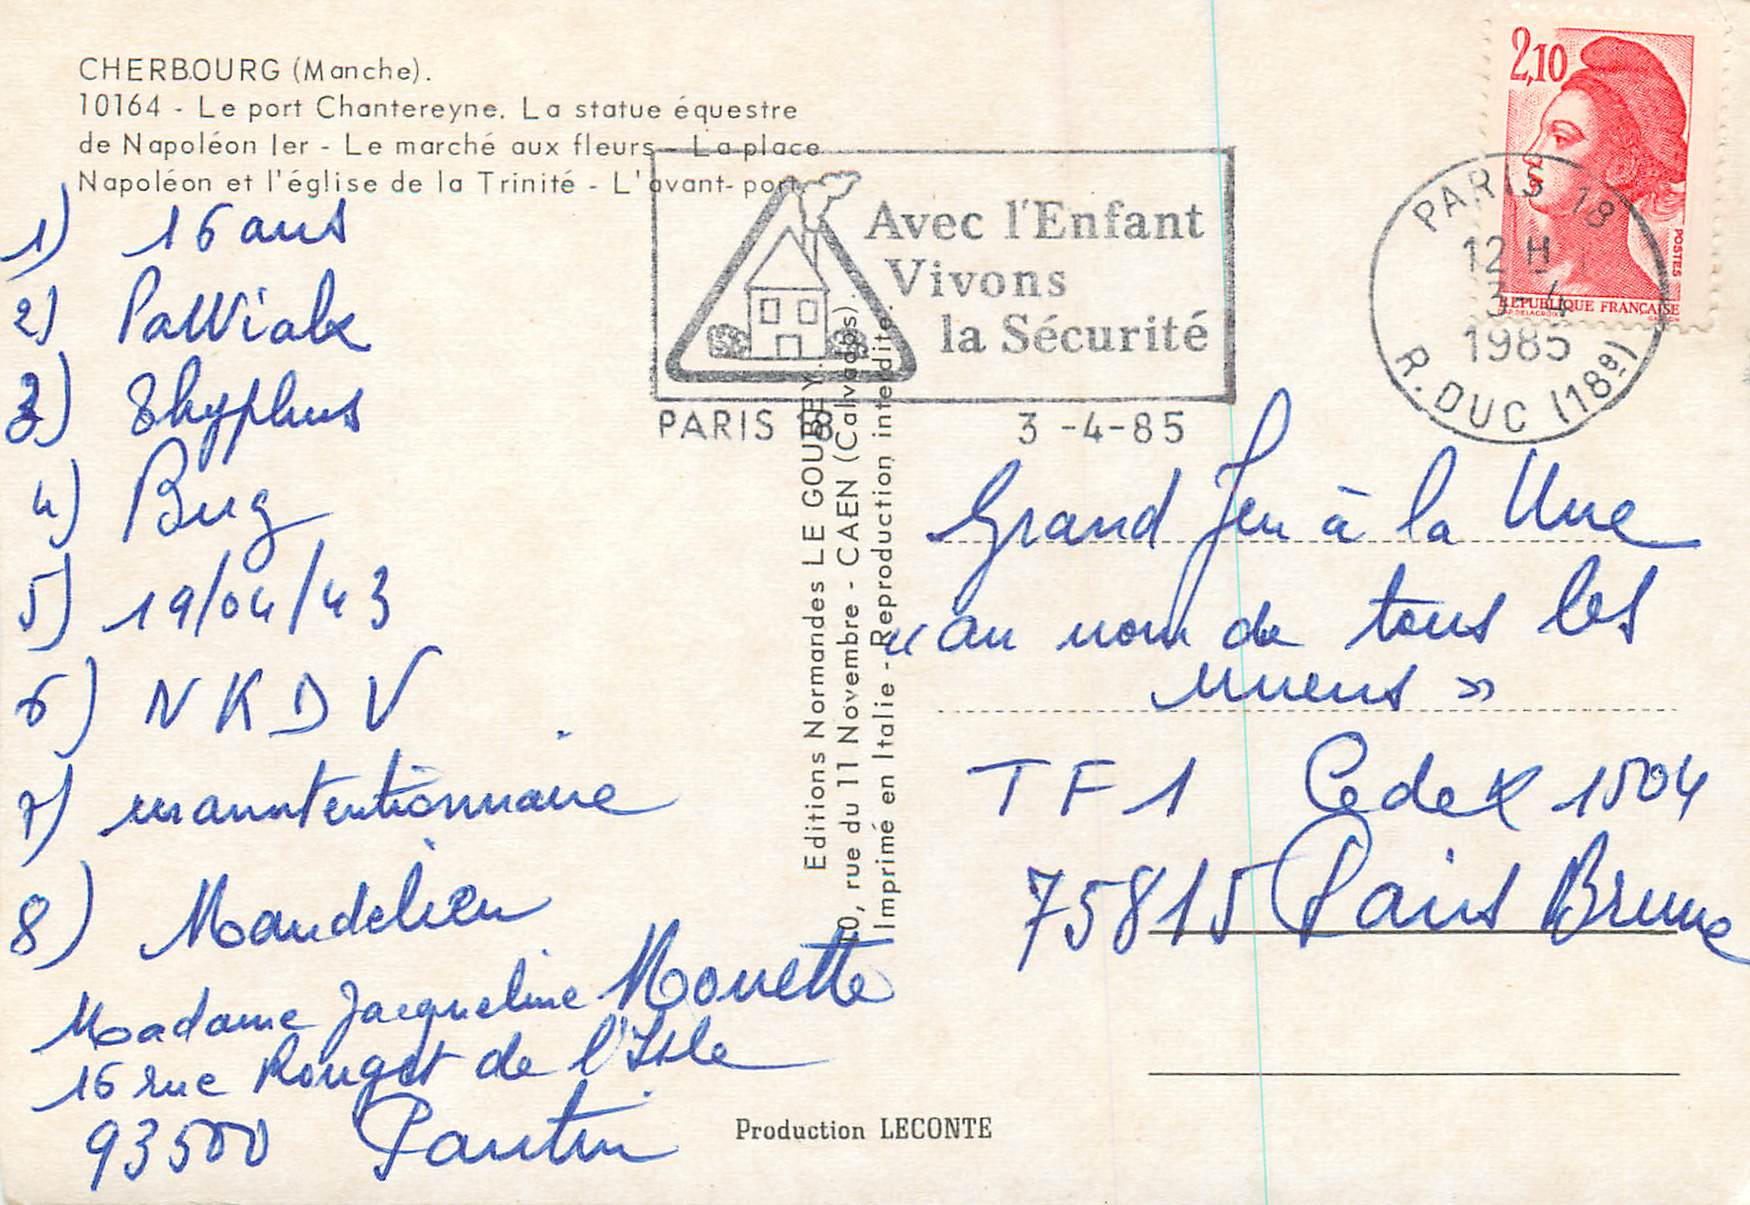 CHERBOURG (Manche).
10164 - Le port Chantereyne. La statue équestre
de Napoléon Ier - Le marché aux fleurs - La place
Napoléon et l'église de la Trinité - L'avant-port.
1) 16 ans
2) Pawiak
3) Thyphus
4) Bug
5) 19/04/43
6) NKDV
7) manutentionnaire
8) Mandelieu
Madame Jacqueline Mouette
16 rue Rouget de l'Isle
93500 Pantin
Avec l'Enfant
Vivons
la Sécurité
PARIS 18 3-4-85
Editions Normandes LE GOUBEY.
10, rue du 11 Novembre - CAEN (Calvados).
Imprimé en Italie - Reproduction interdite.
2,10
POSTES
REPUBLIQUE FRANÇAISE
PARIS 18
12 H
3-4
1985
R. DUC (18e)
Grand Jeu à la Une
"au nom de tous les
miens »
TF1 Cedex 1504
75815 Paris Brune
Production LECONTE